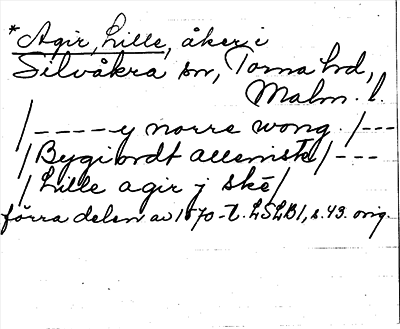 *Agir, Lille, åker i
Silvåkra sn, Torna hd,
Malm. l.
/-----y norre wong./---
/Bygiordt allenist/---
/Lille agir j skē/
förra delen av 1570-t. LSLB1, s. 49. orig.